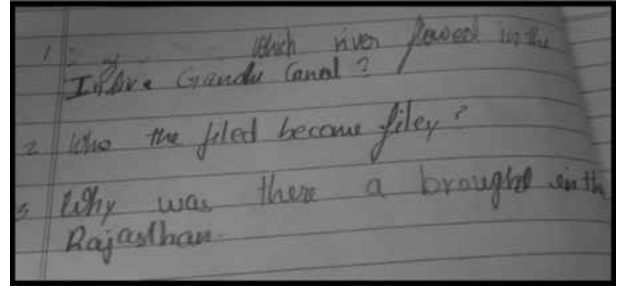 1 Which river flowed in the
Indira Gandhi Canal ?
2 Who the filed become filey ?
3 Why was there a brought in the
Rajasthan.